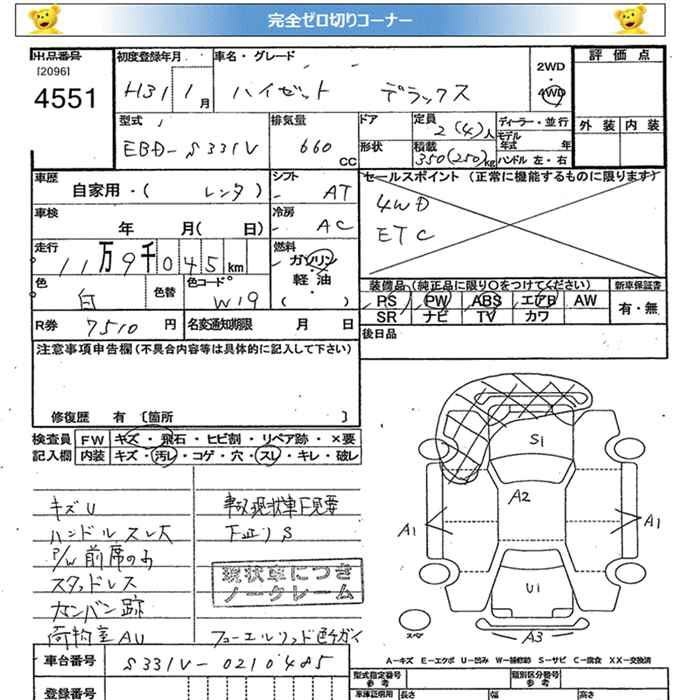 完全ゼロ切りコーナー
出品番号
[2096]
4551
初度登録年月
H31 1 月
車名・グレード
ハイゼット デラックス
2WD
4WD
評価点
外装 内装
型式
EBD-S331V
排気量
660 CC
ドア
形状
定員
2(4)人
積載
350(250)kg
ディーラー・並行
モデル年式 年
ハンドル 左・右
車歴
自家用・( レンタ )
シフト
AT
セールスポイント (正常に機能するものに限ります)
4WD
ETC
車検
年 月( 日)
冷房
AC
走行
11万9千045km
燃料
ガソリン・
軽油・
( )
色
白
色替
色コード
W19
装備品 (純正品に限り○をつけてください)
新車保証書
PS PW ABS エアB AW
SR ナビ TV カワ
有・無
R券 7510 円
名変通知期限 月 日
後日品
注意事項申告欄 (不具合内容等は具体的に記入して下さい)
修復歴 有〔箇所 〕
検査員記入欄
FW キズ・飛石・ヒビ割・リペア跡・×要
内装 キズ・汚レ・コゲ・穴・スレ・キレ・破レ
キズU
ハンドルスレ大
P/W前席のみ
スタッドレス
カンバン跡
荷物室AU
事故現状車下見要
下廻りS
現状車につき
ノークレーム
フューエルリッド色チガイ
S1
A2
A1
A1
U1
A3
スペア
A-キズ E-エクボ U-凹み W-補修跡 S-サビ C-腐食 XX-交換済
車台番号 S331V-0210485
登録番号
型式指定番号
参考
類別区分番号
参考
車庫証明用 長さ 幅 高さ